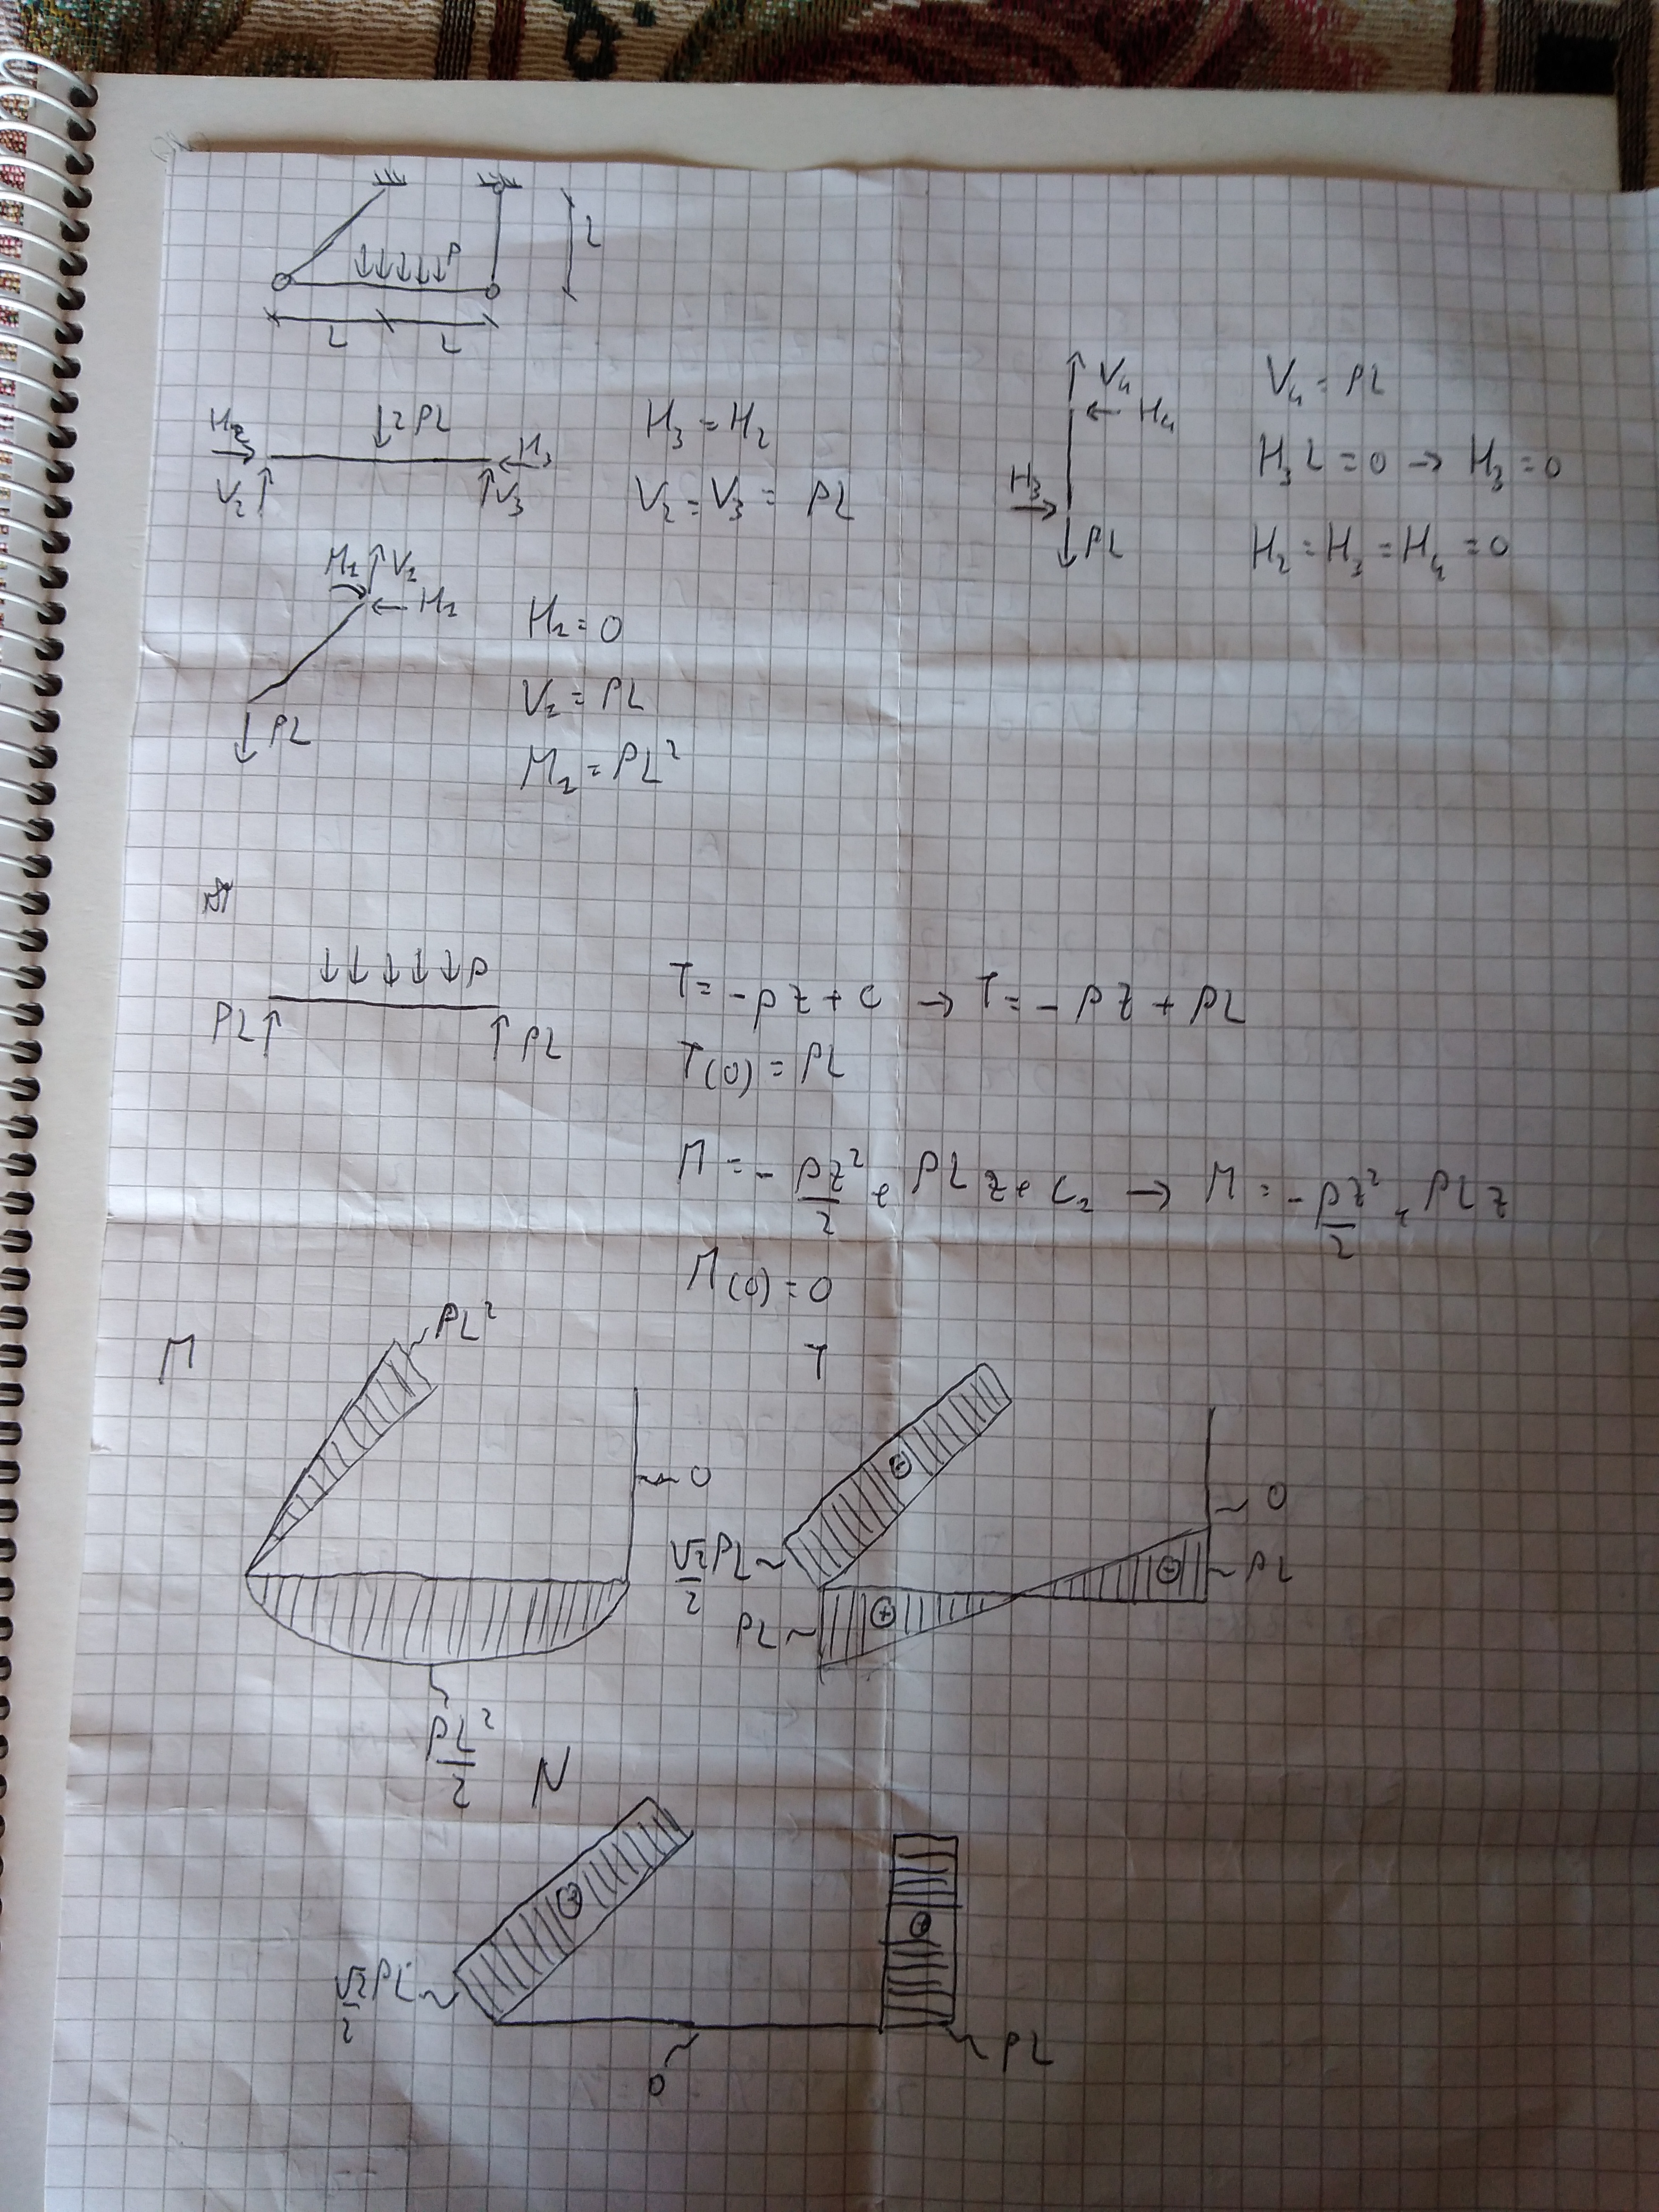 P
L
L L
H₂ ↓2PL H₃
V₂ V₃
H₃ = H₂
V₂ = V₃ = PL
V₄
H₄
H₃
PL
V₄ = PL
H₃ L = 0 → H₃ = 0
H₂ = H₃ = H₄ = 0
M₁ V₁
H₁
PL
H₁ = 0
V₁ = PL
M₁ = PL²
↓↓↓↓↓P
PL↑ ↑PL
T = -pz + C → T = -pz + PL
T(0) = PL
M = -pz²/2 + PLz + C₂ → M = -pz²/2 + PLz
M(0) = 0
M
PL²
0
PL²/2
T
√2/2 PL
⊕
0
PL
⊕
PL
N
⊕
√2/2 PL
0
PL